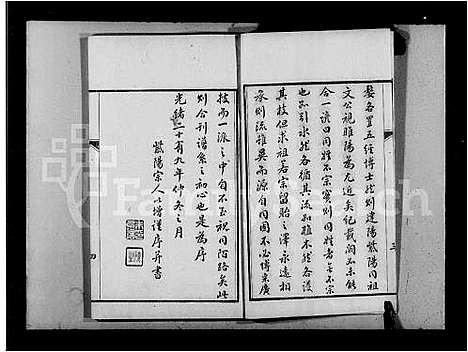 婺各置五經博士然則建陽紫陽同祖
文公視睢陽為尤近矣紀載闕而未能
合一譜曰同姓不宗實則同姓者無不宗
也如引水然各循其流如蓺木然各護
其枝但求祖若宗留貽之澤永遠相
承則流雖異而源自同固不必博求廣
技而一派之中自不至視同陌路矣此
則合刊譜系之初心也是為序
光緒二十有九年仲冬之月
紫陽宗人以增謹序并書
三
四